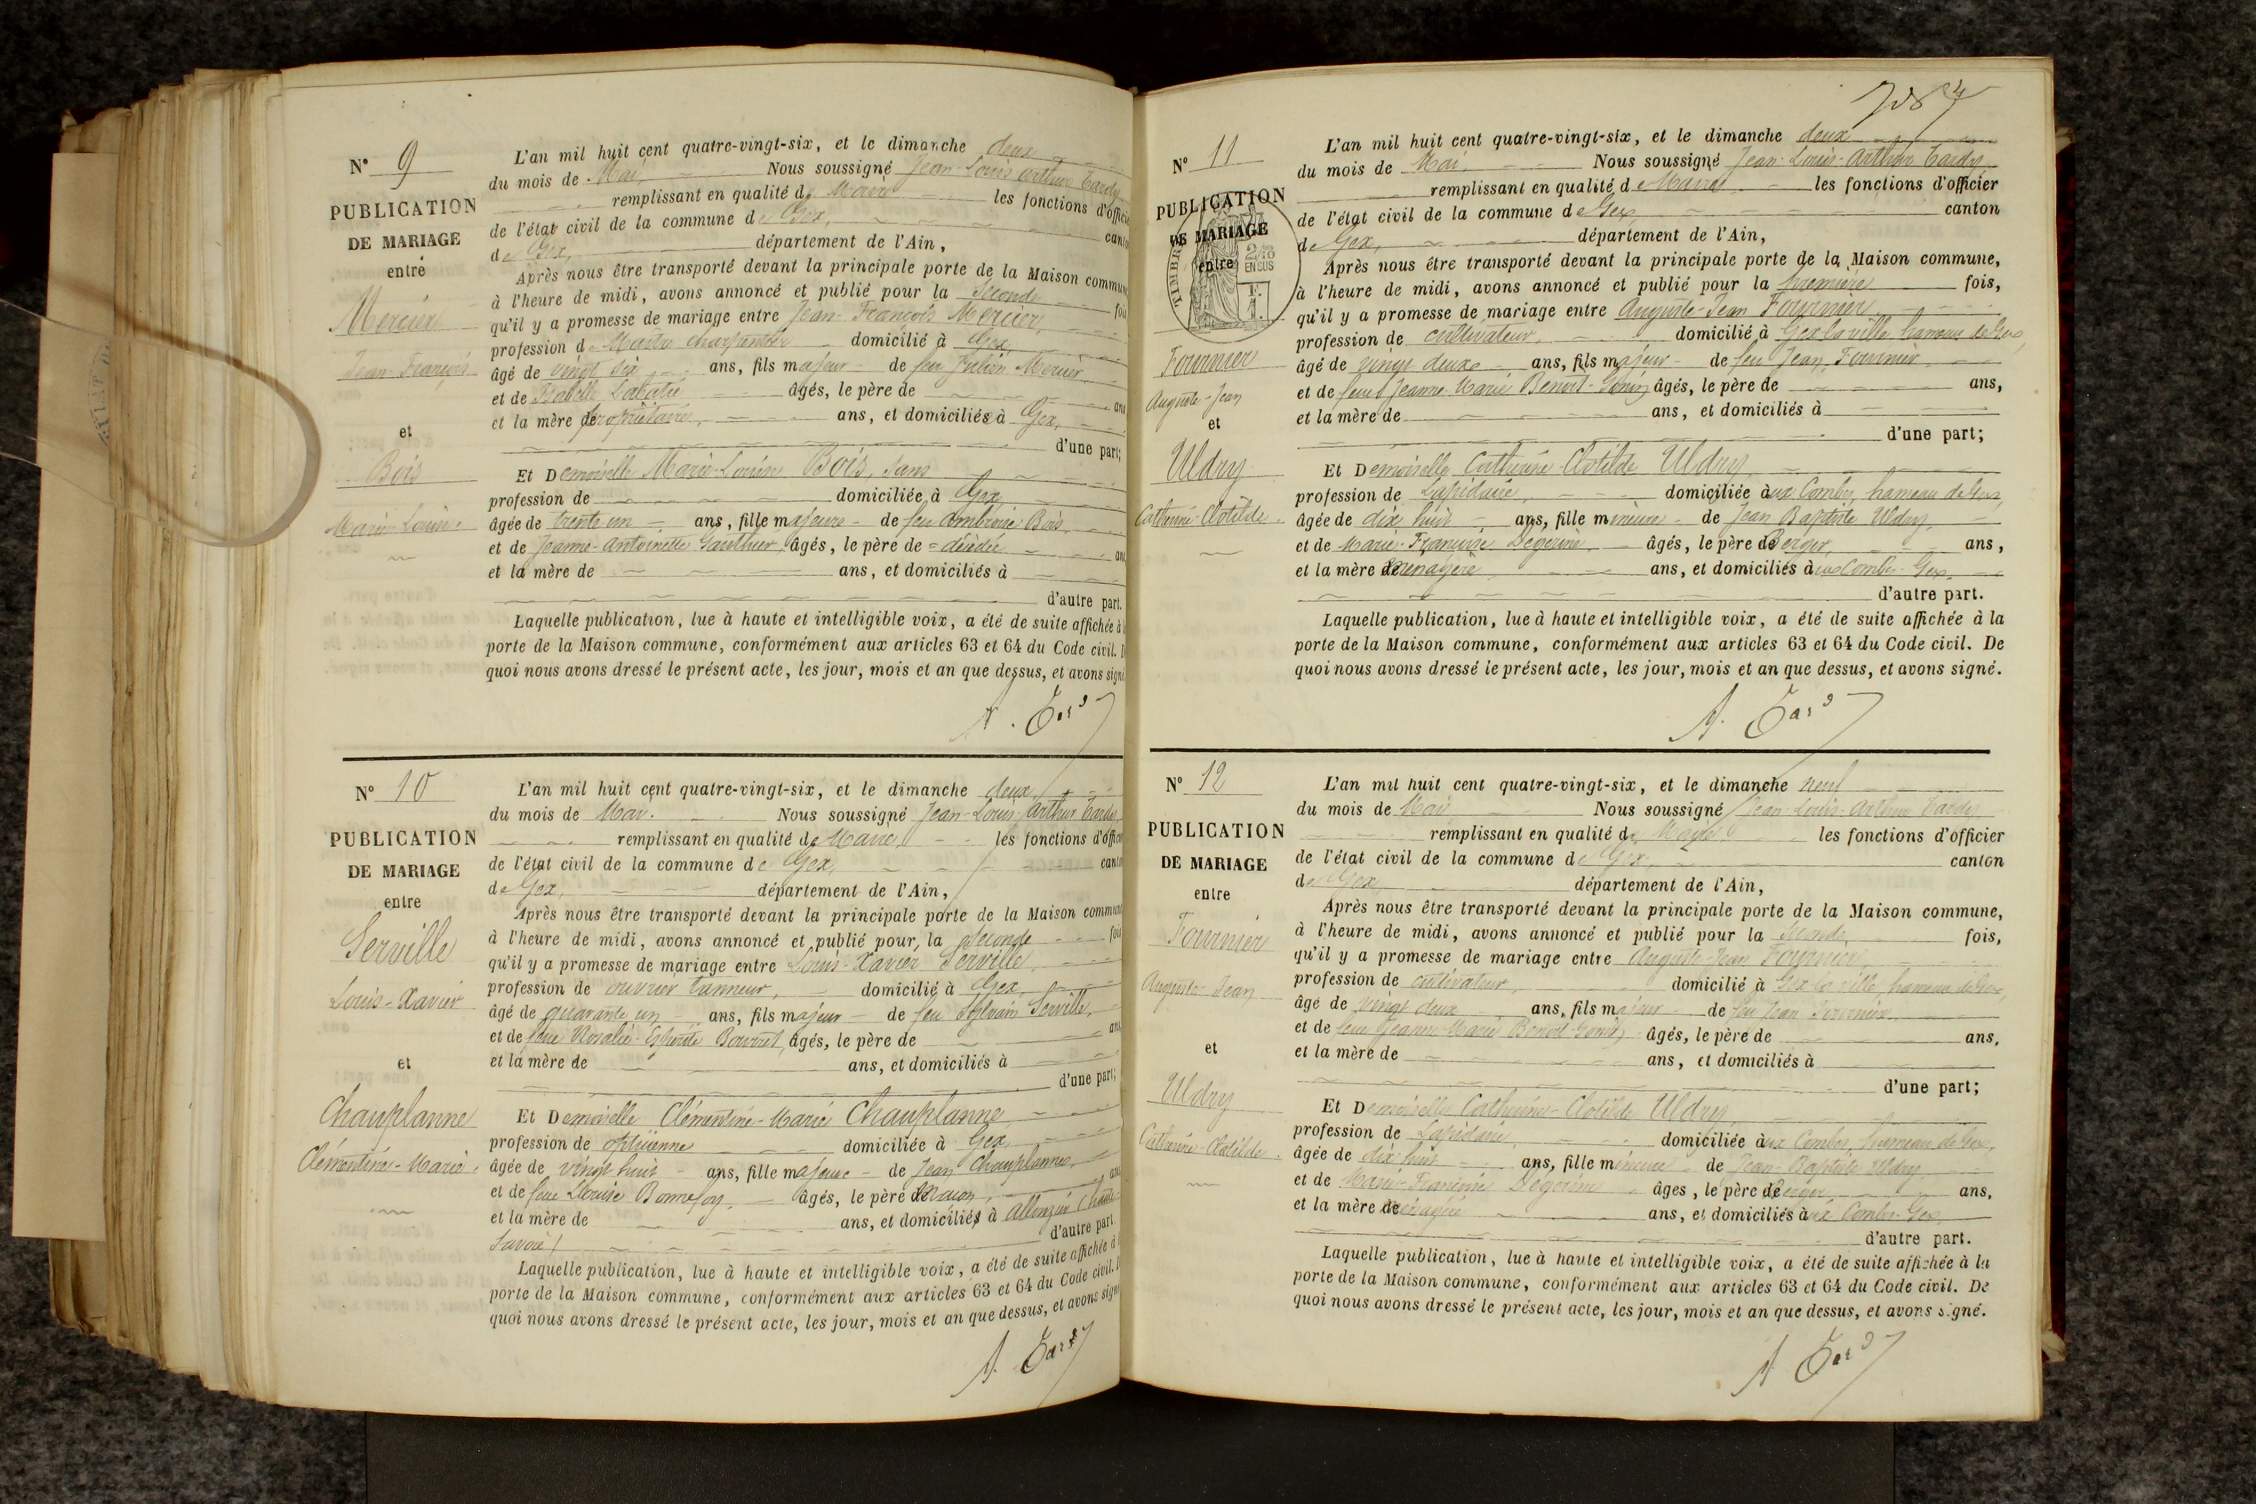 N° 9
PUBLICATION
DE MARIAGE
entre
Mercier
Jean-François
et
Bois
Marie-Louise
L'an mil huit cent quatre-vingt-six, et le dimanche deux
du mois de Mai Nous soussigné Jean-Louis Arthur Tardy
remplissant en qualité de Maire les fonctions d'officie
de l'état civil de la commune de Gex, canto
de Gex, département de l'Ain,
Après nous être transporté devant la principale porte de la Maison commun
à l'heure de midi, avons annoncé et publié pour la Seconde foi
qu'il y a promesse de mariage entre Jean-François Mercier,
profession de Maître charpentier domicilié à Gex,
âgé de vingt six ans, fils majeur de feu Mercier
et de âgés, le père de ans
et la mère de propriétaire, ans, et domiciliés à Gex,
d'une part;
Et Demoiselle Marie-Louise Bois, sans
profession de domiciliée à Gex
âgée de trente un ans, fille majeure de feu Ambroise Bois
et de Jeanne-Antoinette Gauthier âgés, le père de = décédée ans
et la mère de ans, et domiciliés à
d'autre part.
Laquelle publication, lue à haute et intelligible voix, a été de suite affichée à l
porte de la Maison commune, conformément aux articles 63 et 64 du Code civil. D
quoi nous avons dressé le présent acte, les jour, mois et an que dessus, et avons signé
A. Tardy
N° 10
PUBLICATION
DE MARIAGE
entre
Serville
Louis-Xavier
et
Chauplanne
Clémentine-Marie
L'an mil huit cent quatre-vingt-six, et le dimanche deux
du mois de Mai. Nous soussigné Jean-Louis Arthur Tardy,
remplissant en qualité de Maire les fonctions d'officie
de l'état civil de la commune de Gex, canto
de Gex, département de l'Ain,
Après nous être transporté devant la principale porte de la Maison commun
à l'heure de midi, avons annoncé et publié pour la Seconde foi
qu'il y a promesse de mariage entre Louis-Xavier Serville
profession de ouvrier tanneur, domicilié à Gex
âgé de quarante un ans, fils majeur de feu Sylvain Serville,
et de feue Rosalie âgés, le père de ans
et la mère de ans, et domiciliés à
d'une part;
Et Demoiselle Clémentine-Marie Chauplanne
profession de domiciliée à Gex
âgée de vingt huit ans, fille majeure de Jean Chauplanne,
et de feue Louise Bonnefoy, âgés, le père de Maçon, ans
et la mère de ans, et domiciliés à Allonzier (Haute-
Savoie) d'autre part.
Laquelle publication, lue à haute et intelligible voix, a été de suite affichée à l
porte de la Maison commune, conformément aux articles 63 et 64 du Code civil. D
quoi nous avons dressé le présent acte, les jour, mois et an que dessus, et avons signé
A. Tardy
N° 11
PUBLICATION
DE MARIAGE
entre
TIMBRE
2/10
EN SUS
Fournier
Auguste-Jean
et
Uldry
Catherine-Clotilde
L'an mil huit cent quatre-vingt-six, et le dimanche deux
du mois de Mai Nous soussigné Jean-Louis-Arthur Tardy
remplissant en qualité de Maire les fonctions d'officier
de l'état civil de la commune de Gex canton
de Gex, département de l'Ain,
Après nous être transporté devant la principale porte de la Maison commune,
à l'heure de midi, avons annoncé et publié pour la première fois,
qu'il y a promesse de mariage entre Auguste-Jean Fournier
profession de cultivateur, domicilié à Gex la ville, hameau de Gex,
âgé de vingt deux ans, fils majeur de feu Jean Fournier
et de feue Jeanne-Marie Benoit-Gonin âgés, le père de ans,
et la mère de ans, et domiciliés à
d'une part;
Et Demoiselle Catherine Clotilde Uldry
profession de Lapidaire, domiciliée aux Combes, hameau de Gex,
âgée de dix huit ans, fille mineure de Jean Baptiste Uldry,
et de Marie-Françoise Dégerine âgés, le père de Berger, ans,
et la mère de ménagère ans, et domiciliés aux Combes-Gex.
d'autre part.
Laquelle publication, lue à haute et intelligible voix, a été de suite affichée à la
porte de la Maison commune, conformément aux articles 63 et 64 du Code civil. De
quoi nous avons dressé le présent acte, les jour, mois et an que dessus, et avons signé.
A. Tardy
N° 12
PUBLICATION
DE MARIAGE
entre
Fournier
Auguste-Jean
et
Uldry
Catherine-Clotilde
L'an mil huit cent quatre-vingt-six, et le dimanche neuf
du mois de Mai Nous soussigné Jean-Louis-Arthur Tardy
remplissant en qualité de Maire les fonctions d'officier
de l'état civil de la commune de Gex, canton
de Gex département de l'Ain,
Après nous être transporté devant la principale porte de la Maison commune,
à l'heure de midi, avons annoncé et publié pour la Seconde fois,
qu'il y a promesse de mariage entre Auguste-Jean Fournier
profession de cultivateur, domicilié à Gex la ville, hameau de Gex,
âgé de vingt deux ans, fils majeur de feu Jean Fournier
et de feue Jeanne-Marie Benoit-Gonin, âgés, le père de ans,
et la mère de ans, et domiciliés à
d'une part;
Et Demoiselle Catherine-Clotilde Uldry
profession de Lapidaire, domiciliée aux Combes, hameau de Gex,
âgée de dix huit ans, fille mineure de Jean-Baptiste Uldry
et de Marie-Françoise Dégerine âgés, le père de Berger ans,
et la mère de ménagère ans, et domiciliés aux Combes-Gex
d'autre part.
Laquelle publication, lue à haute et intelligible voix, a été de suite affichée à la
porte de la Maison commune, conformément aux articles 63 et 64 du Code civil. De
quoi nous avons dressé le présent acte, les jour, mois et an que dessus, et avons signé.
A. Tardy